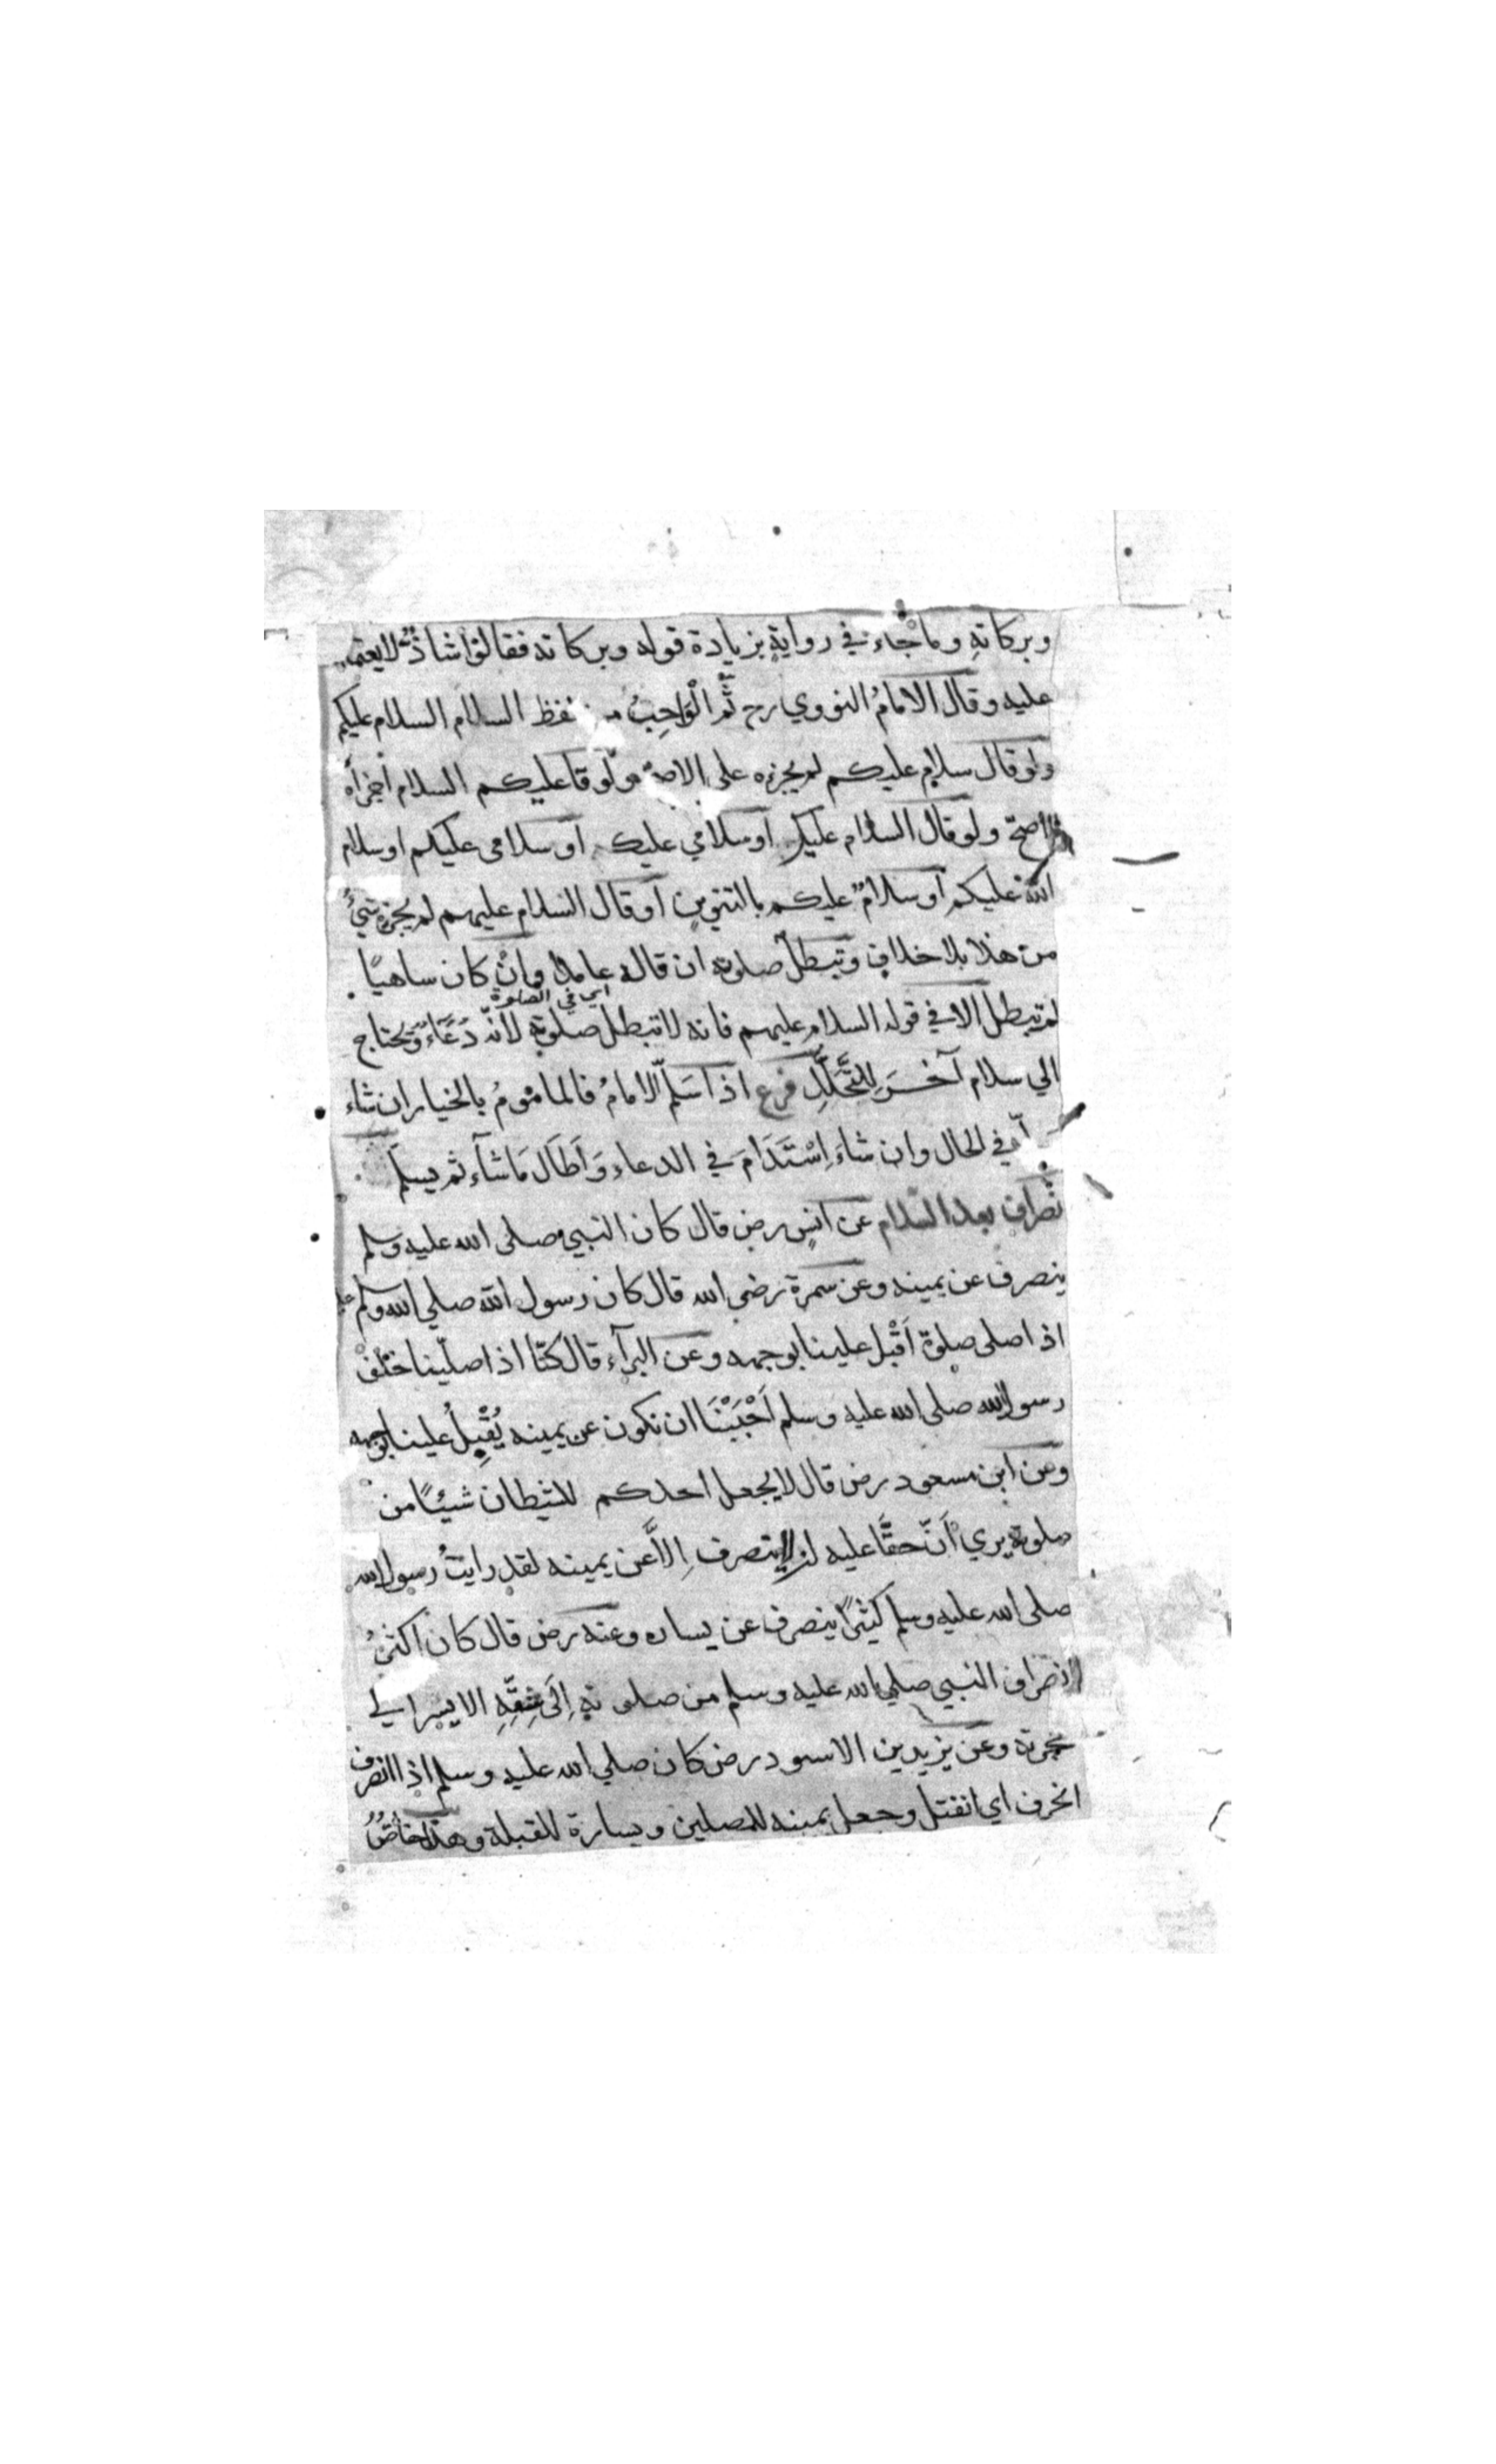 وبركاته وما جاء في رواية بزيادة قوله وبركاته فقالوا شاذة لا يعتمد
عليه وقال الامامُ النووي رح ثُمَّ الْوَاجِبُ من لفظ السلام السلام عليكم
ولو قال سلام عليكم لم يجزه على الاصح ولو قا عليكم السلام اجزأه
الاصح ولو قال السلام عليك اوسلامي عليك اوسلامي عليكم اوسلام
الله عليكم اوسلامٌ عليكم بالتنوين اوقال السلام عليهم لم يجزه شيءٌ
من هذا بلا خلاف وتبطل صلوته ان قاله عامدا وانْ كان ساهيًا
اي في الصلوة
لم تبطل الا في قوله السلام عليهم فانه لا تبطل صلوته لانّه دُعَاءٌ ويحتاج
الي سلام آخَرَ لِلتَّحَلُّلِ فرع اذا سَلَّم الامامُ فالمامومُ بالخيار ان شاء
في الحال وان شاءَ اِسْتَدَامَ في الدعاء وَاَطَالَ مَا شآء ثم يسلم
نصراف بعد السلام عن انسٍ رض قال كان النبي صلى الله عليه وسلم
ينصرف عن يمينه وعن سمرة رضي الله قال كان رسول الله صلي الله وسلم عليه
اذا صلى صلوة اَقْبل علينا بوجهه وعن البرآء قال كنّا اذا صلّينا خلْفْ
رسول الله صلى الله عليه وسلم اَحْبَبْنَا ان نكون عن يمينه يُقْبِلُ علينا بوجهه
وعن ابن مسعود رض قال لا يجعل احدكم للشيطان شيئًا من
صلوته يري اَنّ حقًّا عليه ان لا ينصرف اِلاَّ عن يمينه لقد رايتُ رسول الله
صلى الله عليه وسلم كثيرًا ينصرف عن يساره وعنه رض قال كان اكثرُ
انصراف النبي صلي الله عليه وسلم من صلوته اِلَى شِقِّهِ الايسر الي
حجرته وعن يزيد بن الاسود رض كان صلي الله عليه وسلم اذا انصرف
انحرف اي انفتل وجعل يمينه للمصلين ويساره للقبلة وهذا خاصٌّ